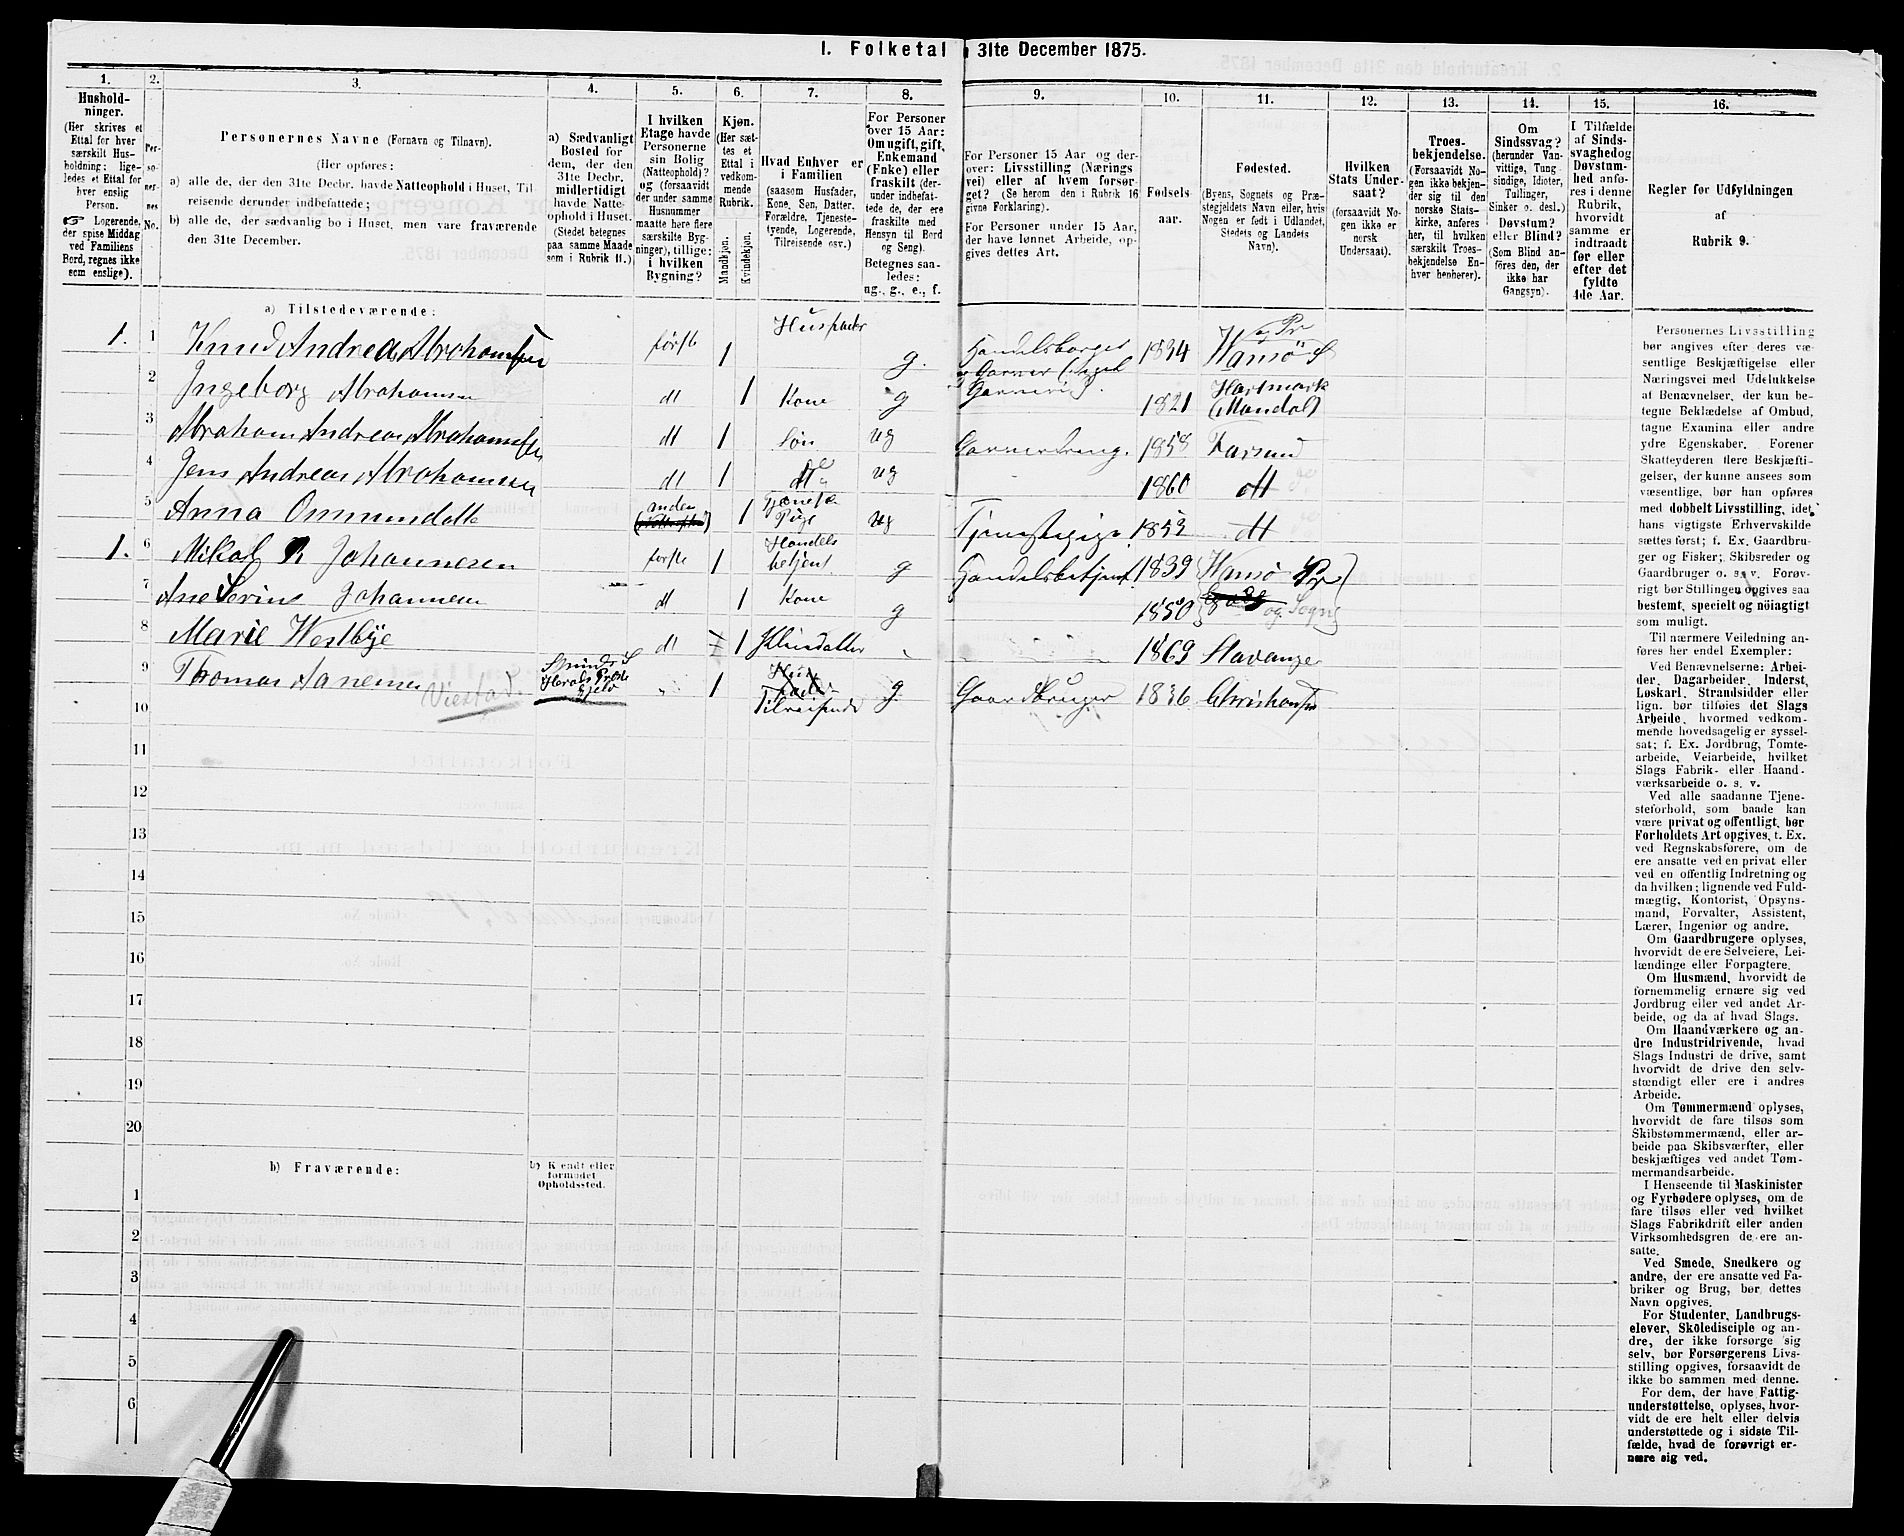 I. Folketal 31te December 1875.
1. 2. 3. 4. 5. 6. 7. 8. 9. 10. 11. 12. 13. 14. 15. 16.
Hushold-
ninger.
(Her skrives et
Ettal for hver
særskilt Hus-
holdning; lige-
ledes et Ettal for
hver enslig
Person.
☞ Logerende,
der spise Middag
ved Familiens
Bord, regnes ikke
som enslige).
Per-
so-
ner-
nes
No.
Personernes Navne (Fornavn og Tilnavn).
(Her opføres:
a) alle de, der den 31te Decbr. havde Natteophold i Huset, Til-
reisende derunder indbefattede;
b) alle de, der sædvanlig bo i Huset, men vare fraværende
den 31te December.
a) Sædvanligt
Bosted for
dem, der den
31te Decbr.
midlertidigt
havde Natte-
ophold i Huset.
(Stedet betegnes
paa samme Maade
som i Rubrik 11.)
I hvilken
Etage havde
Personerne
sin Bolig
(Natteophold)?
og (forsaavidt
der under samme
Husnummer
maatte høre flere
særskilte Byg-
ninger), tillige:
i hvilken
Bygning?
Kjøn.
(Her sæt-
tes et
Ettal i
vedkom-
mende
Rubrik.
Mandkjøn.
Kvindekjøn.
Hvad Enhver er
i Familien
(saasom Husfader,
Kone, Søn, Datter,
Forældre, Tjeneste-
tyende, Logerende,
Tilreisende osv.)
For Personer
over 15 Aar:
Om ugift, gift,
Enkemand
(Enke) eller
fraskilt (der-
under indbefat-
tede de, der ere
fraskilte med
Hensyn til Bord
og Seng).
Betegnes saa-
ledes:
ug., g., e., f.
For Personer 15 Aar og der-
over: Livsstilling (Nærings
vei) eller af hvem forsør-
get? (Se herom den i Rubrik 16
givne Forklaring).
For Personer under 15 Aar,
der have lønnet Arbeide, op-
gives dettes Art.
Fødsels-
aar.
Fødested.
(Byens, Sognets og Præ-
stegjeldets Navn eller, hvis
Nogen er født i Udlandet,
Stedets og Landets
Navn).
Hvilken
Stats Under-
saat?
(forsaavidt No-
gen ikke er
norsk
Undersaat).
Troes-
bekjendelse.
(Forsaavidt No-
gen ikke bekjen-
der sig til den
norske Stats-
kirke, anføres
her, til hvilken
særskilt Troes-
bekjendelse En-
hver henhører).
Om
Sindssvag?
(herunder Van-
vittige, Tung-
sindige, Idioter,
Tullinger,
Sinker o. desl.)
Døvstum?
eller Blind?
(Som Blind an-
føres den, der
ikke har
Gangsyn).
I Tilfælde
af Sinds-
svaghed og
Døvstum-
hed anfø-
res i denne
Rubrik,
hvorvidt
samme er
indtraadt
før eller
efter det
fyldte
4de Aar.
Regler for Udfyldningen
af
Rubrik 9.
a) Tilstedeværende:
1. 1 Knud Andreas Abrahamsen første 1 Husfader g. 1834 og Pr
2 Ingeborg Abrahamsen dt 1 Kone g 1821 Hartmark
(Mandal)
3 Abraham Andreas Abrahamsen dt 1 Søn ug 1858 Farsund
4 Jens Andreas Abrahamsen dt 1 ug 1860 dt
5 Anna Omundatte anden 1 Pige ug 1853 dt
1. 6 Mikal R Johannesen første 1 Handels
betjent g Handelsbetjent 1839
7 Ane Serine Johannesen dt 1 Kone g 1850 og Sogn
8 Marie Westbye dt 1 Pleiedatter 1869 Stavanger
9 Thomas Aanensen Viestad 1 Tilreisende g. Gaardbruger 1836 Christiansand
10
11
12
13
14
15
16
17
18
19
20
b) Fraværende: b) Kjendt eller
formodet
Opholdssted.
1
2
3
4
5
6
Personernes Livsstilling
bør angives efter deres væ-
sentlige Beskjæftigelse eller
Næringsvei med Udelukkelse
af Benævnelser, der kun be-
tegne Beklædelse af Ombud,
tagne Examina eller andre
ydre Egenskaber. Forener
Skatteyderen flere Beskjæfti-
gelser, der kunne ansees som
væsentlige, bør han opføres
med dobbelt Livsstilling, idet
hans vigtigste Erhvervskilde
sættes først; f. Ex. Gaardbru-
ger og Fisker; Skibsreder og
Gaardbruger o. s. v. Forøv-
rigt bør Stillingen opgives saa
bestemt, specielt og nöiagtigt
som muligt.
Til nærmere Veiledning an-
føres her endel Exempler:
Ved Benævnelserne: Arbei-
der, Dagarbeider, Inderst,
Løskarl, Strandsidder eller
lign. bør tilføies det Slags
Arbeide, hvormed vedkom-
mende hovedsagelig er syssel-
sat; f. Ex. Jordbrug, Tomte-
arbeide, Veiarbeide, hvilket
Slags Fabrik- eller Haand-
værksarbeide o. s. v.
Ved alle saadanne Tjene-
steforhold, som baade kan
være privat og offentligt, bør
Forholdets Art opgives, t. Ex.
ved Regnskabsførere, om de
ere ansatte ved en privat eller
ved en offentlig Indretning og
da hvilken; lignende ved Fuld-
mægtig, Kontorist, Opsyns-
mand, Forvalter, Assistent,
Lærer, Ingeniør og andre.
Om Gaardbrugere oplyses,
hvorvidt de ere Selveiere, Lei-
lændinge eller Forpagtere.
Om Husmænd, hvorvidt de
fornemmelig ernære sig ved
Jordbrug eller ved andet Ar-
beide, og da af hvad Slags.
Om Haandværkere og an-
dre Industridrivende, hvad
Slags Industri de drive, samt
hvorvidt de drive den selv-
stændigt eller ere i andres
Arbeide.
Om Tømmermænd oplyses,
hvorvidt de fare tilsøs som
Skibstømmermænd, eller ar-
beide paa Skibsværfter, eller
beskjæftiges ved andet Tøm-
mermandsarbeide.
I Henseende til Maskinister
og Fyrbødere oplyses, om de
fare tilsøs eller ved hvilket
Slags Fabrikdrift eller anden
Virksomhedsgren de ere an-
satte.
Ved Smede, Snedkere og
andre, der ere ansatte ved Fa-
briker og Brug, bør dettes
Navn opgives.
For Studenter, Landbrugs-
elever, Skoledisciple og an-
dre, der ikke forsørge sig
selv, bør Forsørgerens Livs-
stilling opgives, forsaavidt de
ikke bo sammen med denne.
For dem, der have Fattig-
understøttelse, oplyses, hvor-
vidt de ere helt eller delvis
understøttede og i sidste Til-
fælde, hvad de forøvrigt er-
nære sig ved.